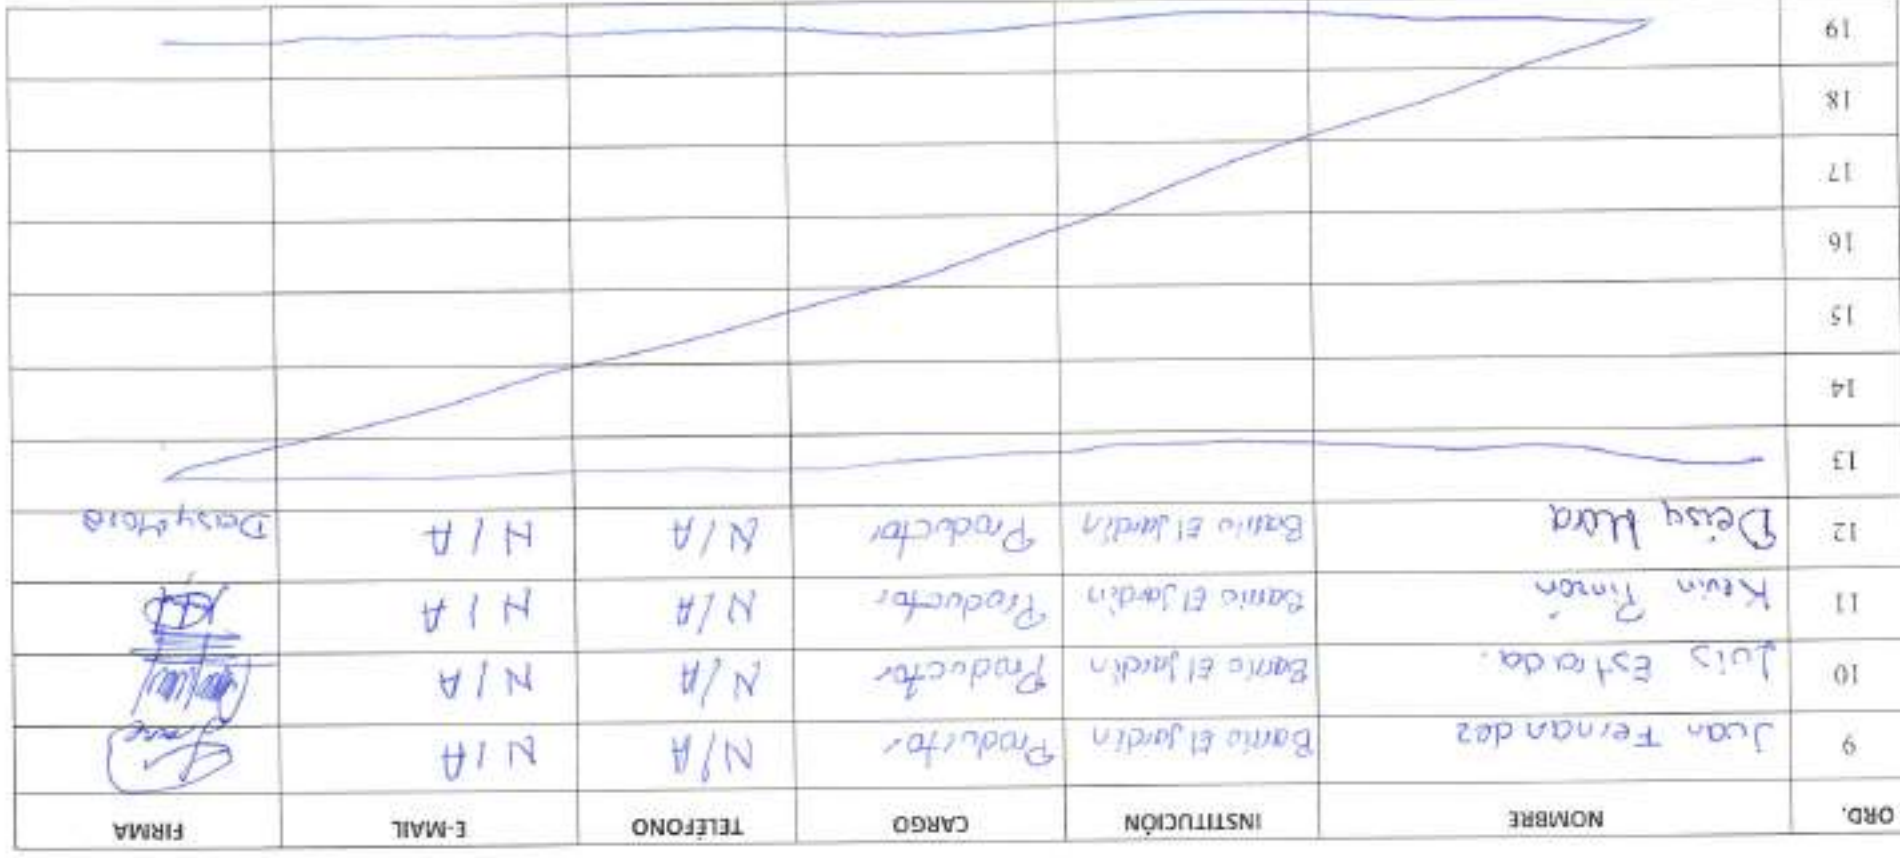 ORD. NOMBRE INSTITUCIÓN CARGO TELÉFONO E-MAIL FIRMA
9 Juan Fernandez Barrio El Jardín Productor N/A N/A
10 Luis Estrada. Barrio El Jardín Productor N/A N/A
11 Kevin Pinzón Barrio El Jardín Productor N/A N/A
12 Deisy Mora Barrio El Jardín Productor N/A N/A Deisy Mora
13
14
15
16
17
18
19